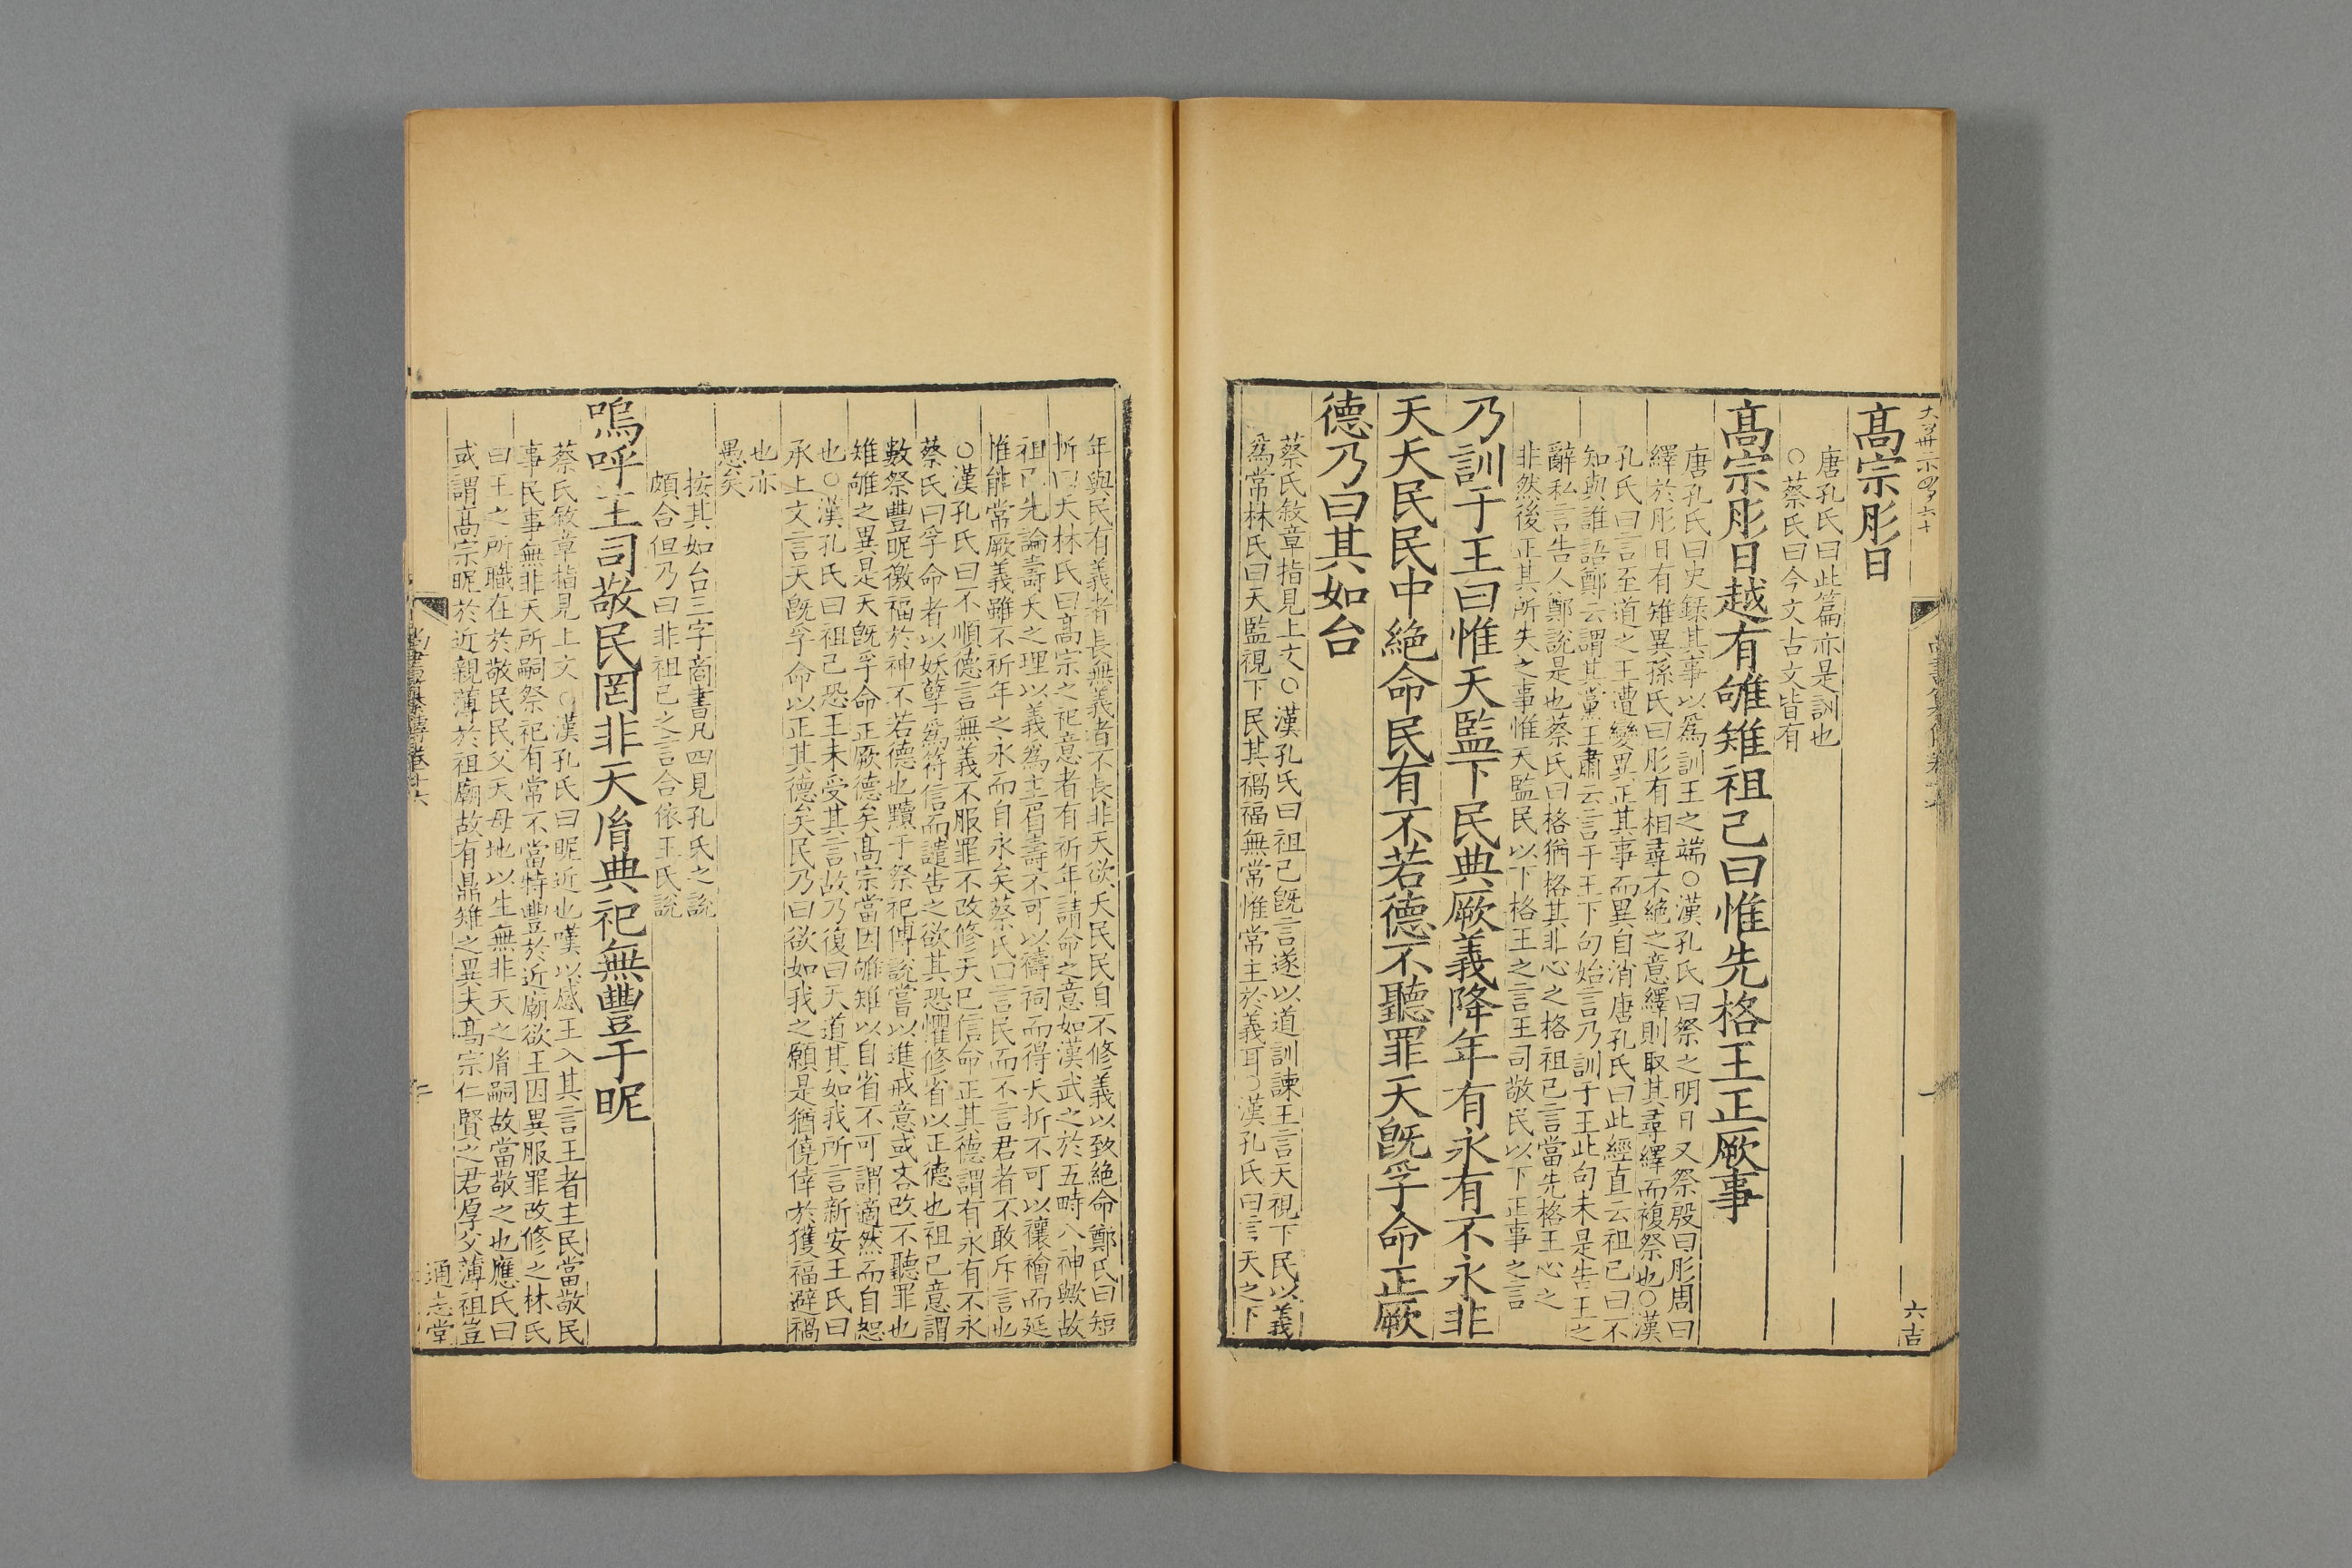 高宗肜日
唐孔氏曰此篇亦是訓也
○蔡氏曰今文古文皆有
高宗肜日越有雊雉祖己曰惟先格王正厥事
唐孔氏曰史錄其事以爲訓王之端○漢孔氏曰祭之明日又祭殷曰肜周曰
繹於肜日有雉異孫氏曰肜有相尋不絶之意繹則取其尋繹而複祭也○漢
孔氏曰言至道之王遭變異正其事而異自消唐孔氏曰此經直云祖己曰不
知與誰語鄭云謂其黨王肅云言于王下句始言乃訓于王此句未是告王之
辭私言告人鄭說是也蔡氏曰格猶格其非心之格祖己言當先格王心之
非然後正其所失之事惟天監民以下格王之言王司敬民以下正事之言
乃訓于王曰惟天監下民典厥義降年有永有不永非
天夭民民中絶命民有不若德不聽罪天旣孚命正厥
德乃曰其如台
蔡氏敘章指見上文○漢孔氏曰祖己旣言遂以道訓諫王言天視下民以義
爲常林氏曰天監視下民其禍福無常惟常主於義耳○漢孔氏曰言天之下
年與民有義者長無義者不長非天欲夭民民自不修義以致絶命鄭氏曰短
折曰夭林氏曰高宗之祀意者有祈年請命之意如漢武之於五畤八神歟故
祖己先論壽夭之理以義爲主眉壽不可以禱祠而得夭折不可以禳禬而延
惟能常厥義雖不祈年之永而自永矣蔡氏曰言民而不言君者不敢斥言也
○漢孔氏曰不順德言無義不服罪不改修天已信命正其德謂有永有不永
蔡氏曰孚命者以妖孽爲符信而譴告之欲其恐懼修省以正德也祖己意謂
數祭豐昵徼福於神不若德也黷于祭祀傅說嘗以進戒意或吝改不聽罪也
雉雊之異是天旣孚命正厥德矣高宗當因雊雉以自省不可謂適然而自恕
也○漢孔氏曰祖己恐王未受其言故乃復曰天道其如我所言新安王氏曰
承上文言天旣孚命以正其德矣民乃曰欲如我之願是猶僥倖於獲福避禍
也亦
愚矣
按其如台三字商書凡四見孔氏之說
頗合但乃曰非祖己之言合依王氏說
嗚呼王司敬民罔非天胤典祀無豐于昵
蔡氏敘章指見上文○漢孔氏曰昵近也嘆以感王入其言王者主民當敬民
事民事無非天所嗣祭祀有常不當特豐於近廟欲王因異服罪改修之林氏
曰王之所職在於敬民民父天母地以生無非天之胤嗣故當敬之也應氏曰
或謂高宗昵於近親薄於祖廟故有鼎雉之異夫高宗仁賢之君厚父薄祖豈
通志堂